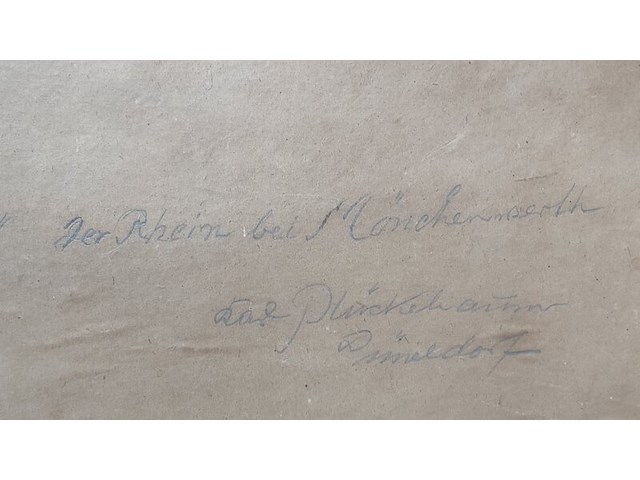 " Der Rhein bei Mönchenwerth
Carl Plückebaum
Düsseldorf